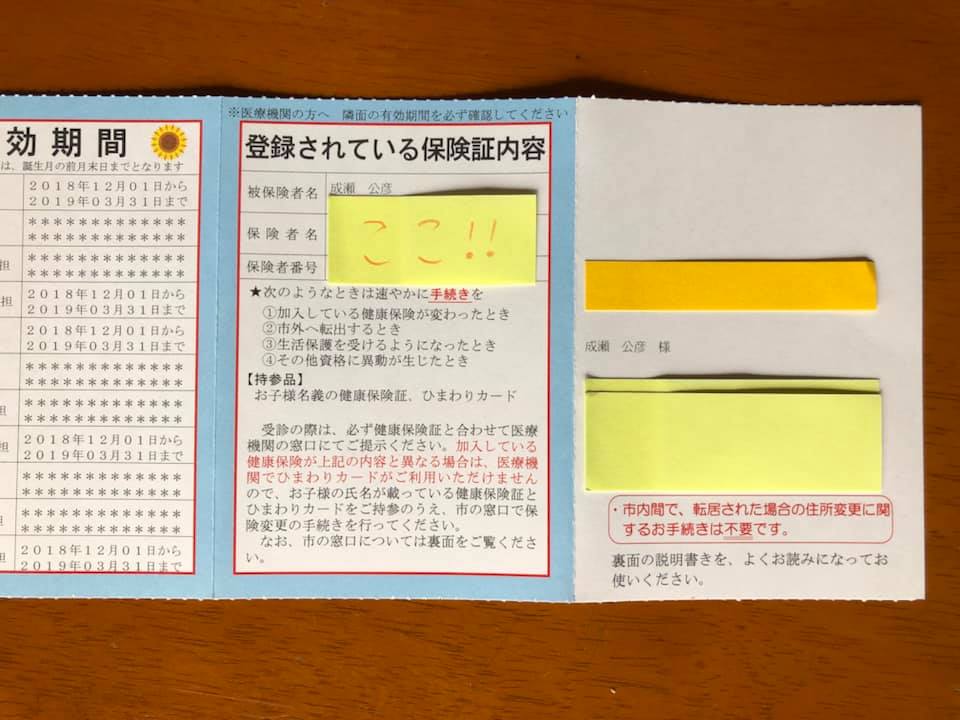 効期間
は、誕生月の前月末日までとなります
2018年12月01日から
2019年03月31日まで
*************
*************
担
*************
*************
担
2018年12月01日から
2019年03月31日まで
2018年12月01日から
2019年03月31日まで
*************
*************
担
*************
*************
担
2018年12月01日から
2019年03月31日まで
*************
*************
*************
*************
担
2018年12月01日から
2019年03月31日まで
※医療機関の方へ 隣面の有効期間を必ず確認してください
登録されている保険証内容
被保険者名 成瀬 公彦
保険者名
保険者番号
ここ!!
★次のようなときは速やかに手続きを
①加入している健康保険が変わったとき
②市外へ転出するとき
③生活保護を受けるようになったとき
④その他資格に異動が生じたとき
【持参品】
お子様名義の健康保険証、ひまわりカード
受診の際は、必ず健康保険証と合わせて医療
機関の窓口にてご提示ください。加入している
健康保険が上記の内容と異なる場合は、医療機
関でひまわりカードがご利用いただけません
ので、お子様の氏名が載っている健康保険証と
ひまわりカードをご持参のうえ、市の窓口で保
険変更の手続きを行ってください。
なお、市の窓口については裏面をご覧くださ
い。
成瀬 公彦 様
・市内間で、転居された場合の住所変更に関
するお手続きは不要です。
裏面の説明書きを、よくお読みになってお
使いください。